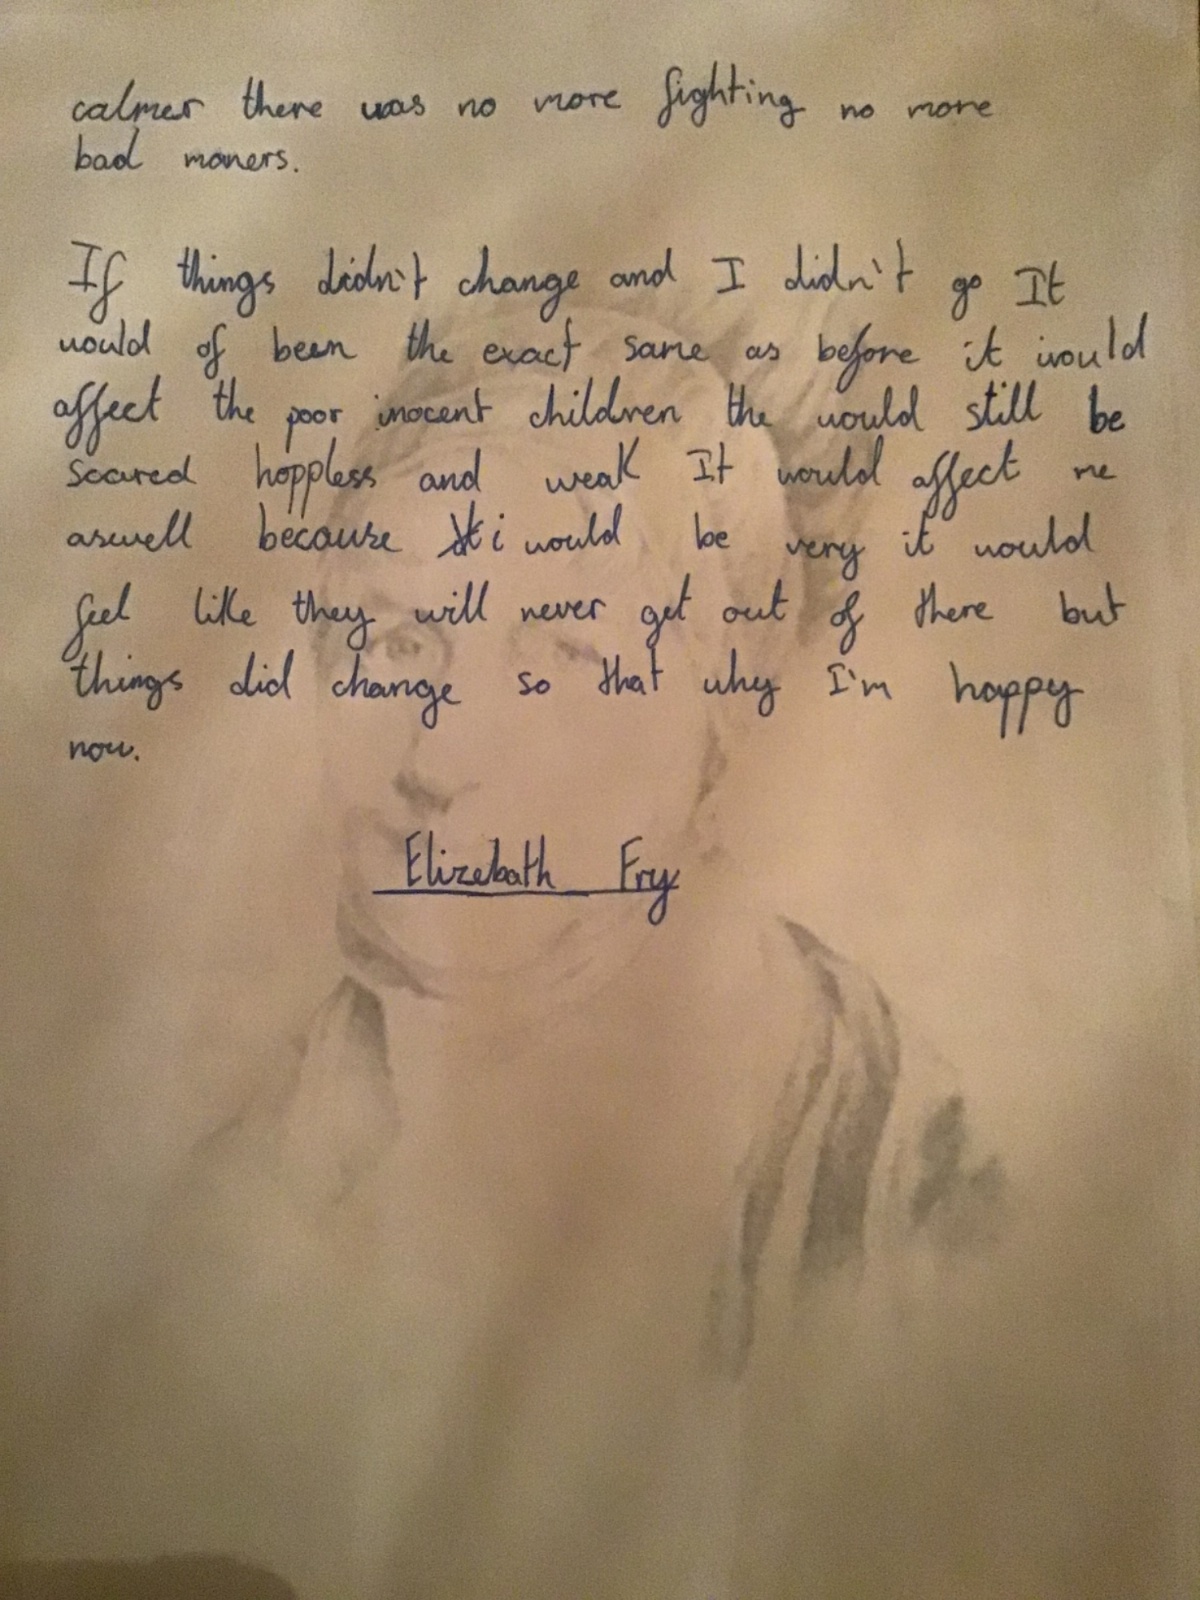 calmer there was no more fighting no more
bad maners.
If things didn't change and I didn't go It
would of been the exact same as before it would
affect the poor inocent children the would still be
scared hoppless and weak It would affect me
aswell because i would be very it would
feel like they will never get out of there but
things did change so that why I'm happy
now.
Elizebath Fry